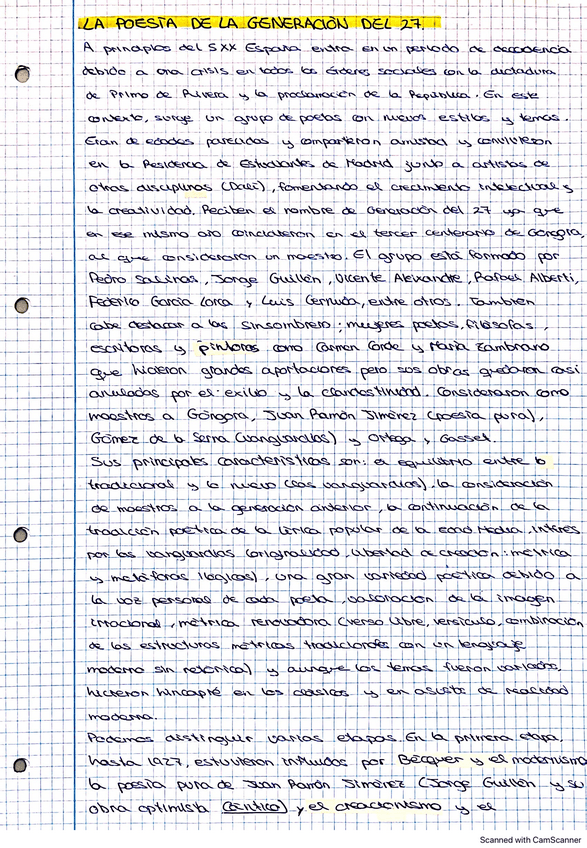 LA POESÍA DE LA GENERACIÓN DEL 27.
A principios del SXX España entra en un periodo de decadencia
debido a una crisis en todos los órdenes sociales con la dictadura
de Primo de Rivera y la proclamación de la República. En este
contexto, surge un grupo de poetas con nuevos estilos y temas.
Eran de edades parecidas y compartieron amistad y convivieron
en la Residencia de Estudiantes de Madrid junto a artistas de
otras disciplinas (Dalí), fomentando el crecimiento intelectual y
la creatividad. Reciben el nombre de Generación del 27 ya que
en ese mismo año coincidieron en el tercer centenario de Góngora,
al que consideraron un maestro. El grupo está formado por
Pedro Salinas, Jorge Guillén, Vicente Aleixandre, Rafael Alberti,
Federico García Lorca y Luis Cernuda, entre otros. También
cabe destacar a las Sinsombrero; mujeres poetas, filósofas,
escritoras y pintoras como Carmen Conde y María Zambrano
que hicieron grandes aportaciones pero sus obras quedaron casi
anuladas por el exilio y la clandestinidad. Consideraron como
maestros a Góngora, Juan Ramón Jiménez (poesía pura),
Gómez de la Serna (vanguardias) y Ortega y Gasset.
Sus principales características son: el equilibrio entre lo
tradicional y lo nuevo (las vanguardias), la consideración
de maestros a la generación anterior, la continuación de la
tradición poética de la lírica popular de la Edad Media, interés
por las vanguardias (originalidad, libertad de creación: métrica
y metáforas ilógicas), una gran variedad poética debido a
la voz personal de cada poeta, valoración de la imagen
irracional, métrica renovadora (verso libre, versículo, combinación
de las estructuras métricas tradicionales con un lenguaje
moderno sin retórica) y aunque los temas fueron variados,
hicieron hincapié en los clásicos y en asuntos de realidad
moderna.
Podemos distinguir varias etapas. En la primera etapa,
hasta 1927, estuvieron influidos por Bécquer y el modernismo
la poesía pura de Juan Ramón Jiménez (Jorge Guillén y su
obra optimista Cántico) y el creacionismo y el
Scanned with CamScanner